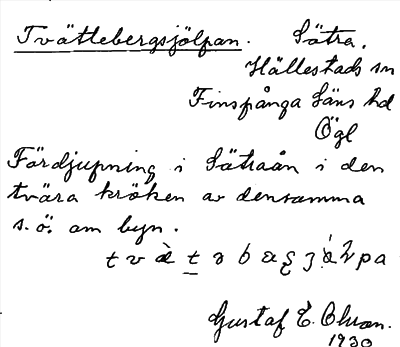 Tvättebergsjölpan. Sätra.
Hällestads sn
Finspånga läns hd
Ögl
Fördjupning i Sätraån i den
tvära kröken av densamma
s.ö. om byn.
Gustaf E. Olson.
1930